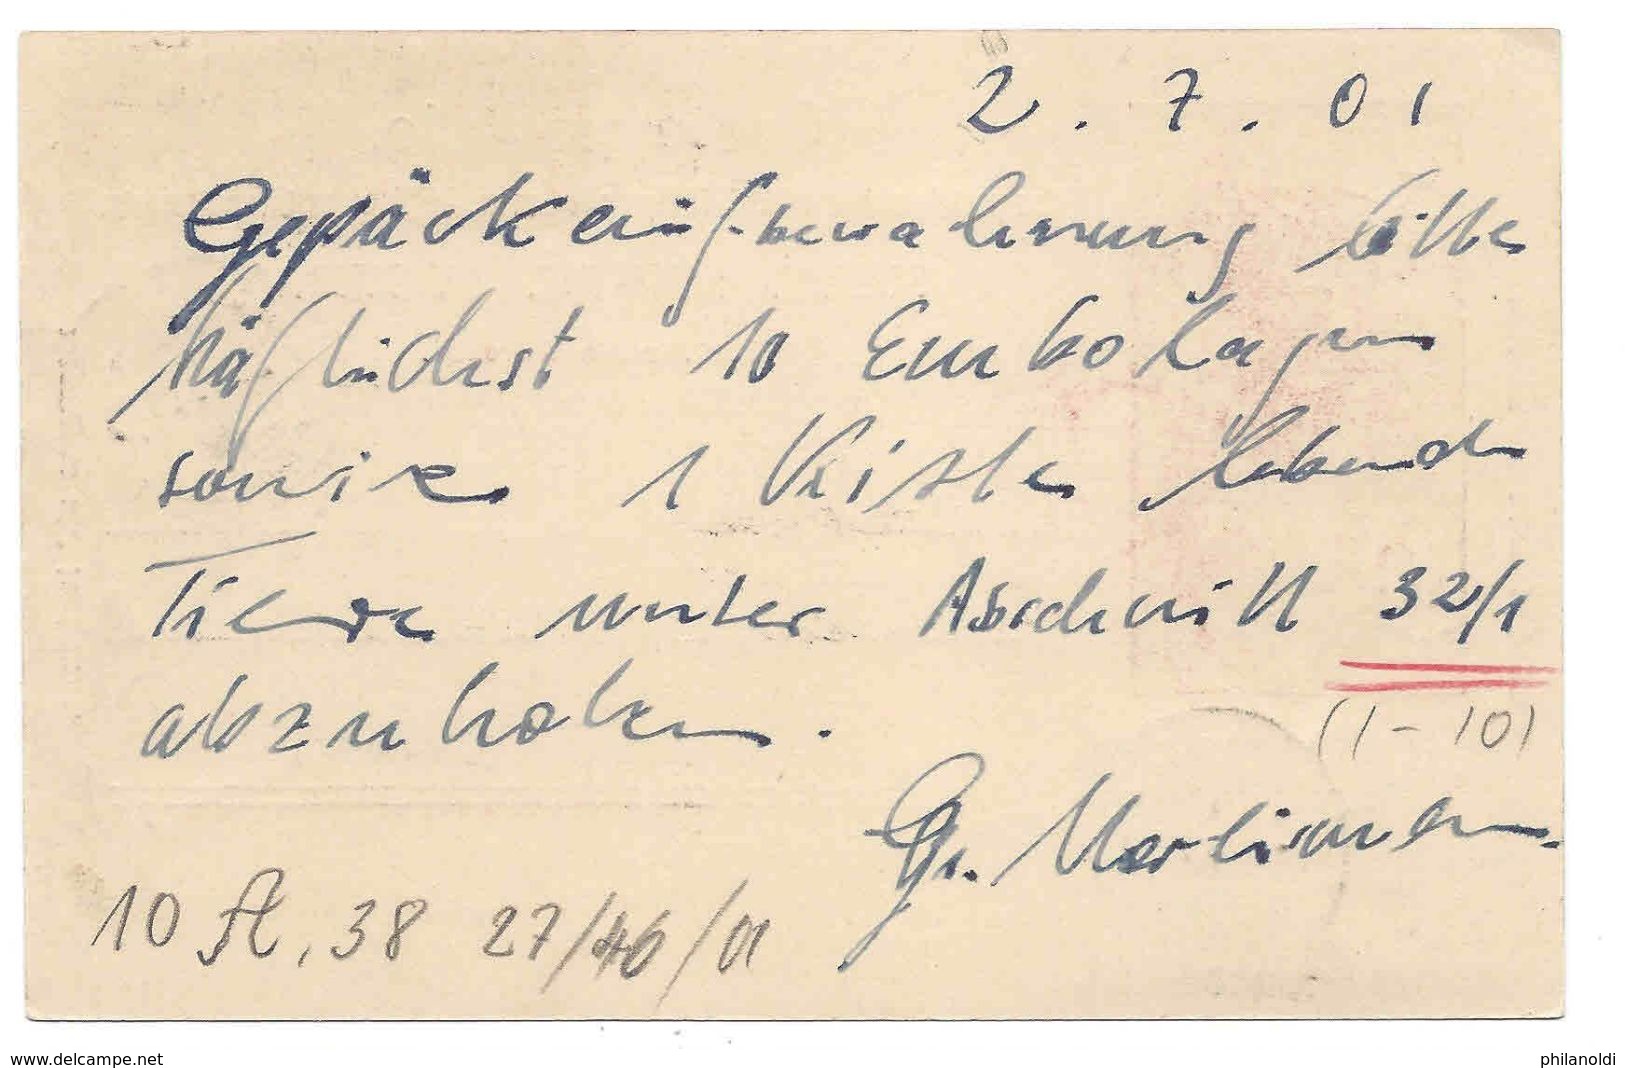 2.7.01
Gepäckaufbewahrung bitte
höflichst 10 Embolagen
sowie 1 Kiste lebende
Tiere unter Abschnitt 32/1
abzuholen.
(1-10)
Gr.
10 St, 38 27/46/01
www.delcampe.net
philanoldi